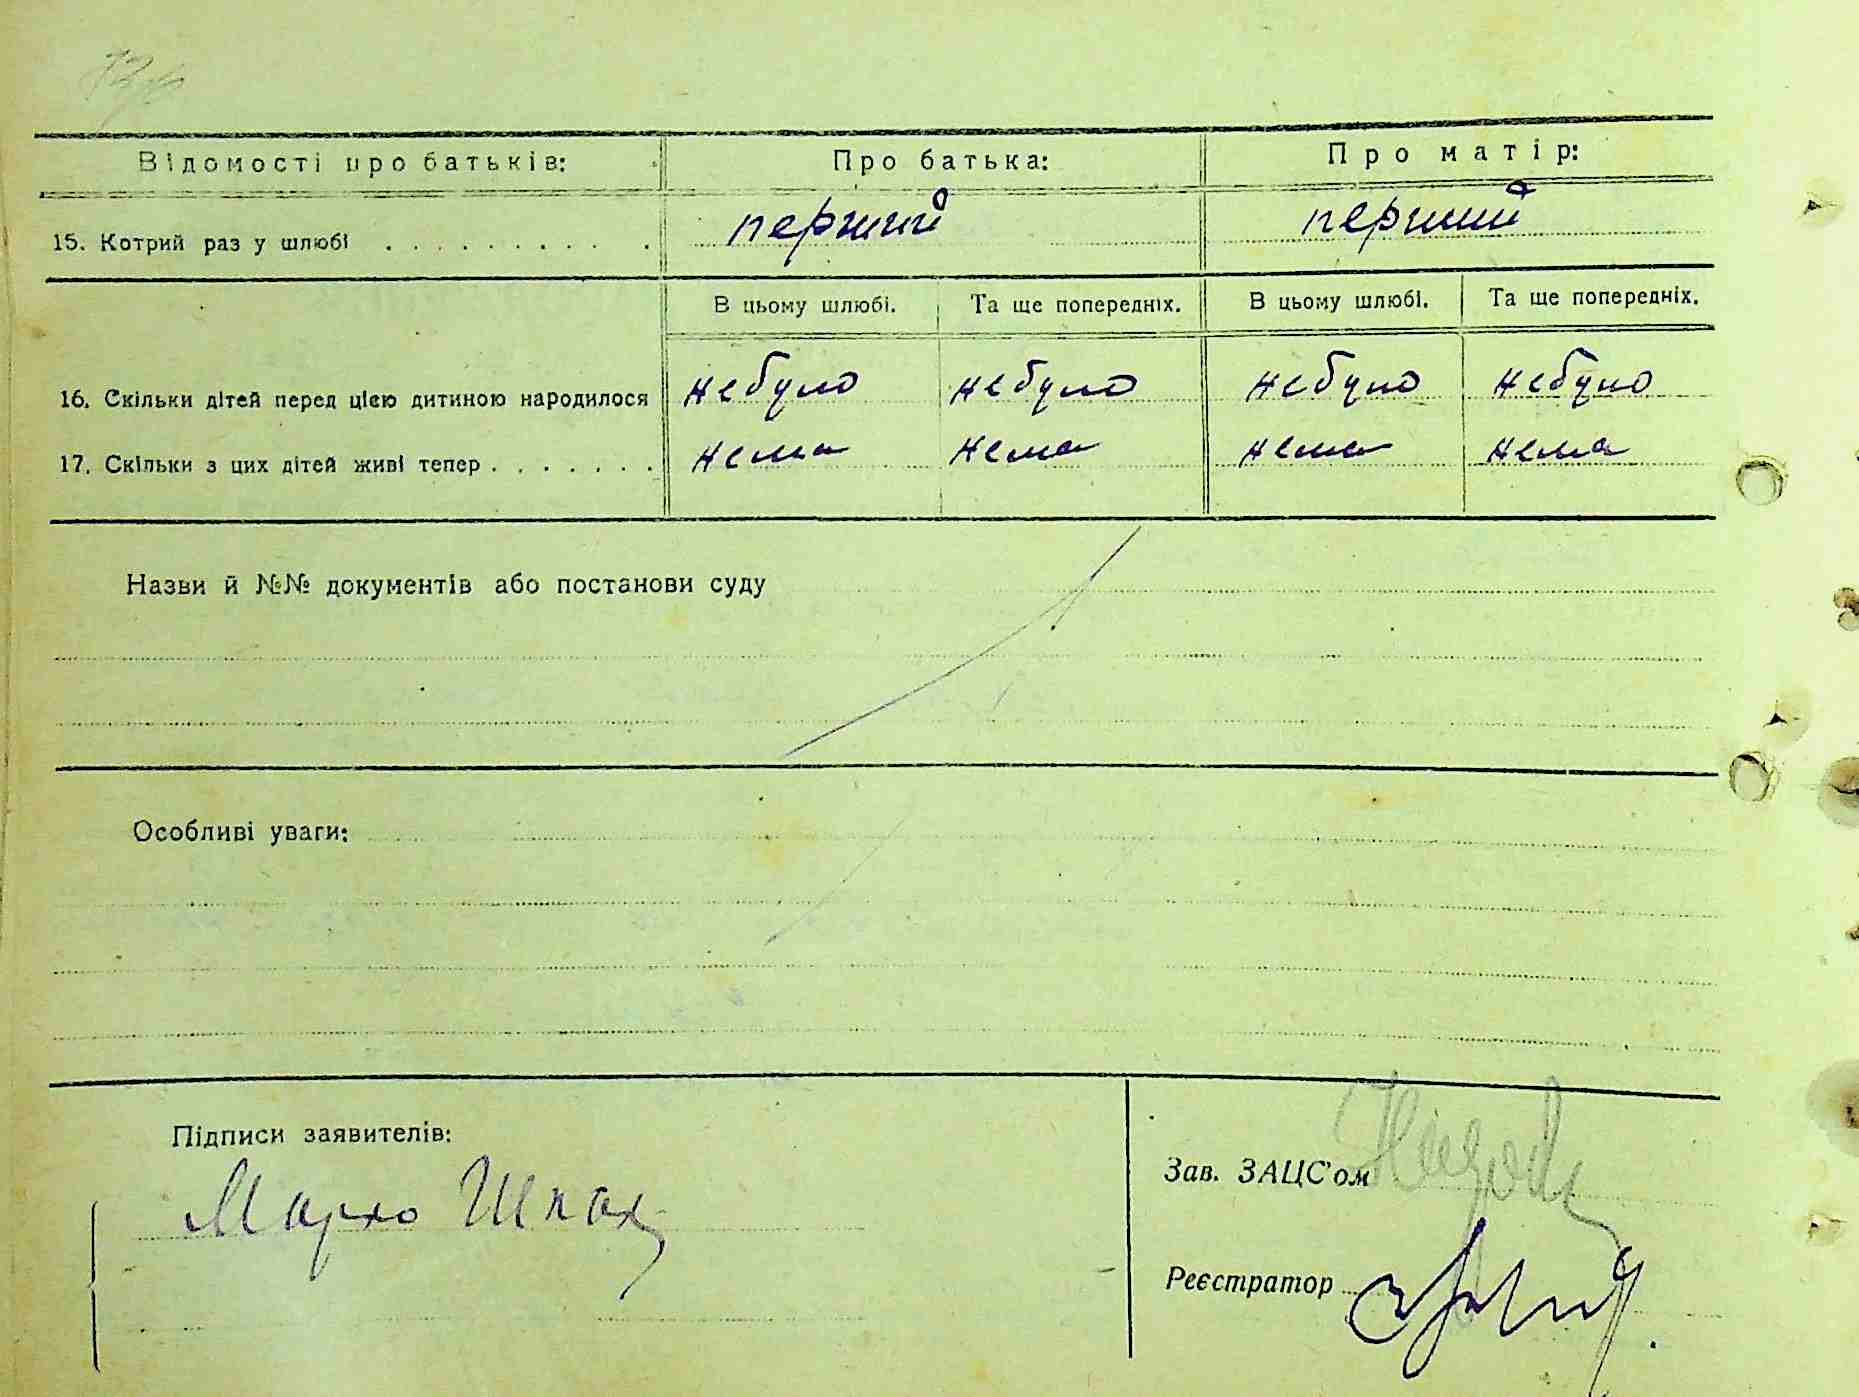 Відомості про батьків: Про батька: Про матір:
15. Котрий раз у шлюбі . . . . . . . . . . перший перший
В цьому шлюбі. Та ще попередніх. В цьому шлюбі. Та ще попередніх.
16. Скільки дітей перед цією дитиною народилося небуло небуло небуло небуло
17. Скільки з цих дітей живі тепер . . . . . . . нема нема нема нема
Назви й №№ документів або постанови суду
Особливі уваги:
Підписи заявителів:
Зав. ЗАЦС'ом
Марко Шпак
Реєстратор